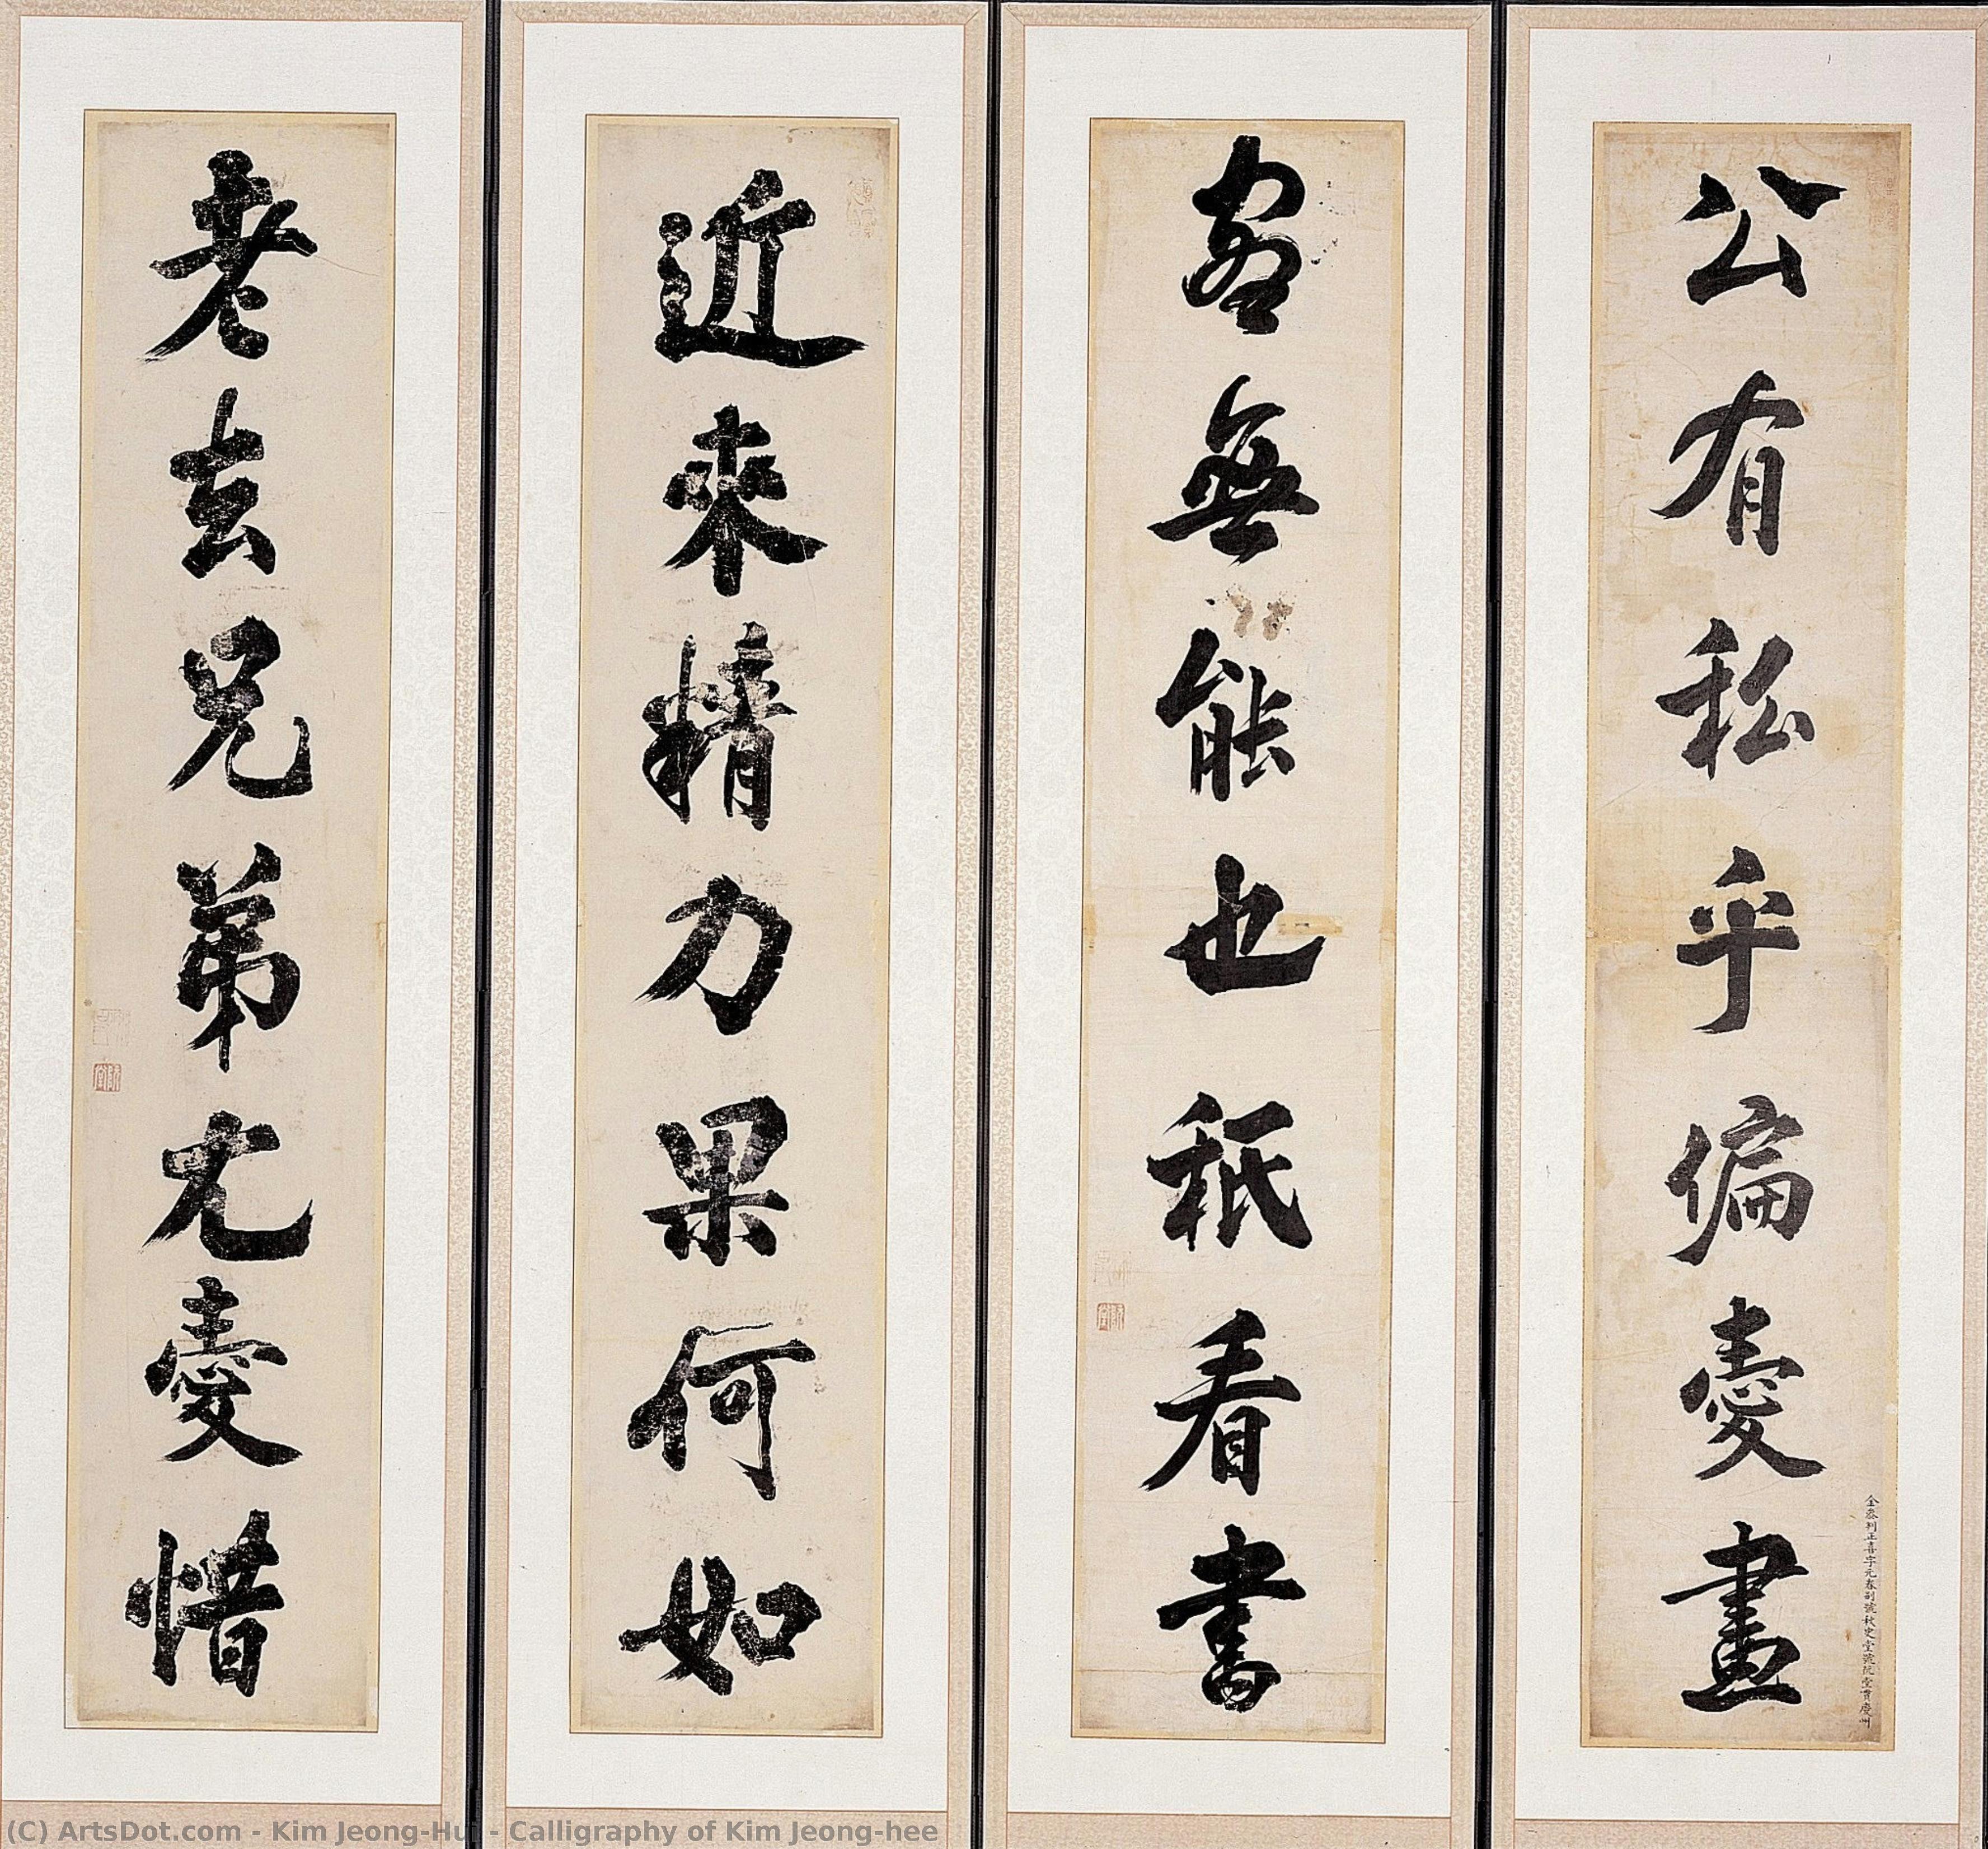 公有私乎偏愛畫
金參判正喜字元春副號秋史堂號阮堂貫慶州
客無能也秪看書
近來精力果何如
老去兄弟尤愛惜
(C) ArtsDot.com - Kim Jeong-Hui - Calligraphy of Kim Jeong-hee